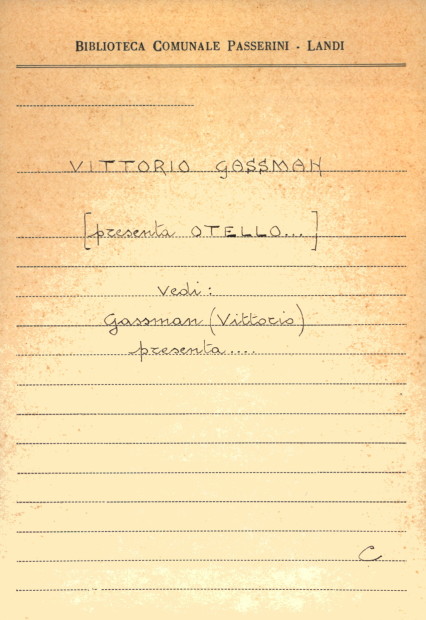 BIBLIOTECA COMUNALE PASSERINI - LANDI
VITTORIO GASSMAN
[presenta OTELLO...]
Vedi:
Gassman (Vittorio)
presenta....
C